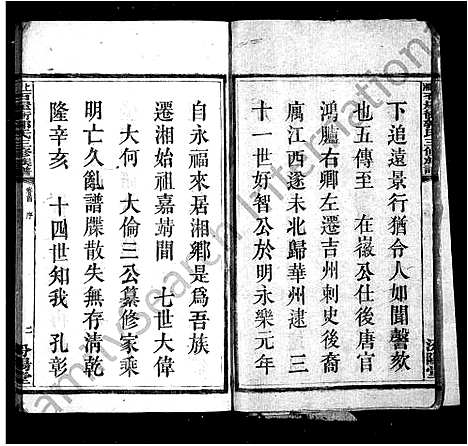 下追遠景行猶令人如聞謦欬
也五傳至 在嶶公仕後唐官
鴻臚右卿左遷吉州刺史後裔
厲江西遂未北歸華州逮 三
十一世好智公於明永樂元年
自永福來居湘鄉是爲吾族
遷湘始祖嘉靖間 七世大偉
大何 大倫三公纂修家乘
明亡久亂譜牒散失無存清乾
隆辛亥 十四世知我 孔彰
氏三修族譜
卷首 序
二